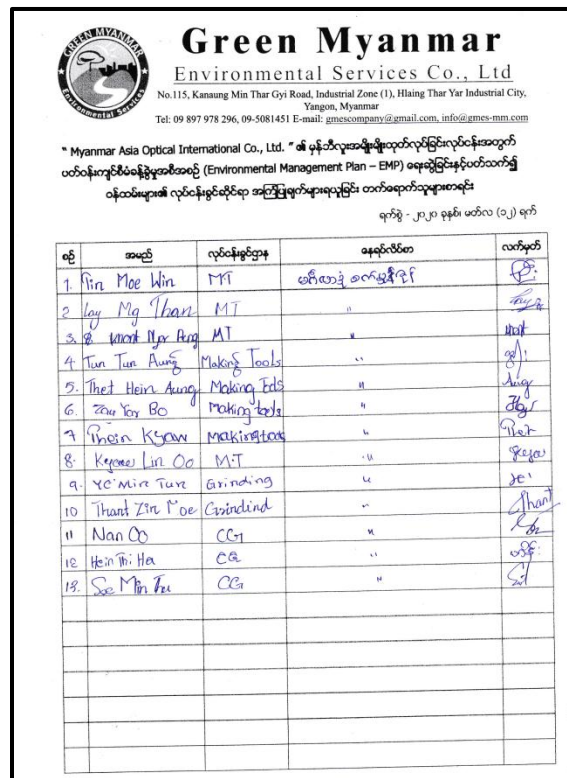 GREEN MYANMAR
Environmental Services
Green Myanmar
Environmental Services Co., Ltd
No.115, Kanaung Min Thar Gyi Road, Industrial Zone (1), Hlaing Thar Yar Industrial City,
Yangon, Myanmar
Tel: 09 897 978 296, 09-5081451 E-mail: gmescompany@gmail.com, info@gmes-mm.com
" Myanmar Asia Optical International Co., Ltd. " ၏ မှန်ဘီလူးအမျိုးမျိုးထုတ်လုပ်ခြင်းလုပ်ငန်းအတွက်
ပတ်ဝန်းကျင်စီမံခန့်ခွဲမှုအစီအစဉ် (Environmental Management Plan – EMP) ရေးဆွဲခြင်းနှင့်ပတ်သက်၍
ဝန်ထမ်းများ၏ လုပ်ငန်းခွင်ဆိုင်ရာ အကြံပြုချက်များရယူခြင်း တက်ရောက်သူများစာရင်း
ရက်စွဲ - ၂၀၂၀ ခုနှစ်၊ မတ်လ (၁၂) ရက်
စဉ် အမည် လုပ်ငန်းခွင်ဌာန နေရပ်လိပ်စာ လက်မှတ်
1. Tin Moe Win MT
2 Lay Mg Than MT "
3. Aung MT "
4 Tun Tun Aung Making Tools "
5. Thet Hein Aung Making " Aung
6. Zaw Yar Bo Making tools "
7 Thein Kyaw Making "
8. Kyaw Lin Oo M.T "
9. Ye Min Tun Grinding "
10 Thant Zin Moe Grindind " Thant
11 Nan Oo CG "
12 Hein Thi Ha CG "
13. Soe Min Thu CG "